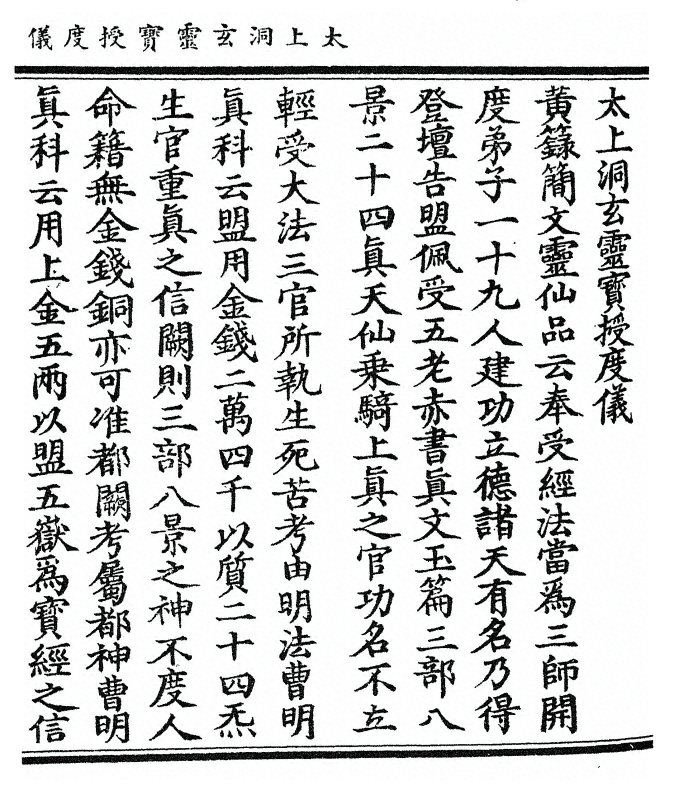 太上洞玄靈寶授度儀
太上洞玄靈寶授度儀
黃籙簡文靈仙品云奉受經法當爲三師開
度弟子一十九人建功立德諸天有名乃得
登壇告盟佩受五老赤書眞文玉篇三部八
景二十四眞天仙乗騎上眞之官功名不立
輕受大法三官所執生死苦考由明法曹明
眞科云盟用金錢二萬四千以質二十四炁
生官重眞之信闕則三部八景之神不度人
命籍無金錢銅亦可准都闕考屬都神曹明
眞科云用上金五兩以盟五嶽爲寶經之信